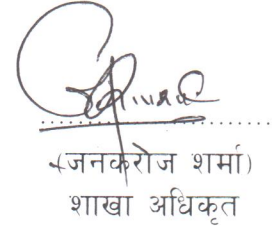 (जनकरोज शर्मा)
शाखा अधिकृत